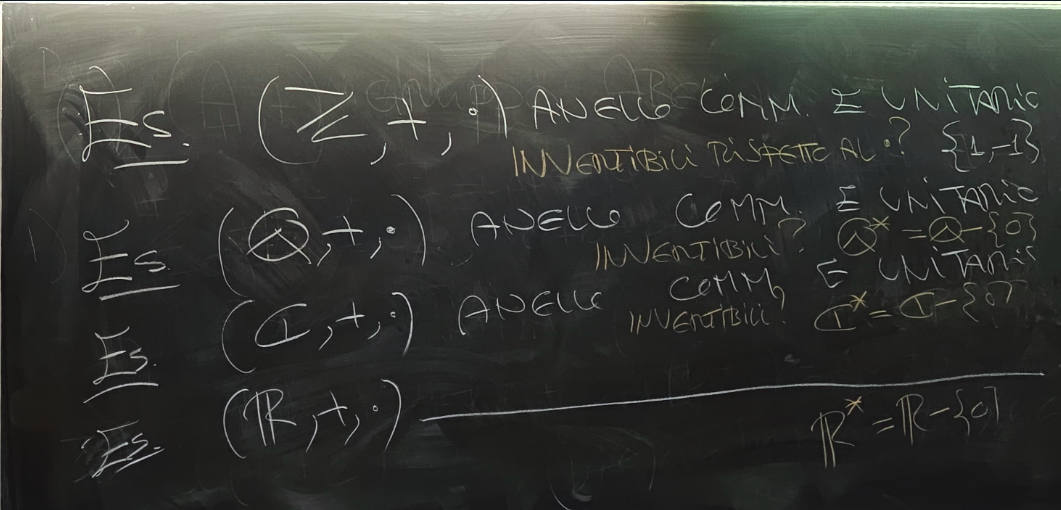 Es. (ℤ, +, ·) ANELLO COMM. E UNITARIO
INVERTIBILI RISPETTO AL ·? {1, -1}
Es. (ℚ, +, ·) ANELLO COMM. E UNITARIO
INVERTIBILI? ℚ* = ℚ - {0}
Es. (ℂ, +, ·) ANELLO COMM. E UNITARIO
INVERTIBILI? ℂ* = ℂ - {0}
Es. (ℝ, +, ·) ———— ℝ* = ℝ - {0}